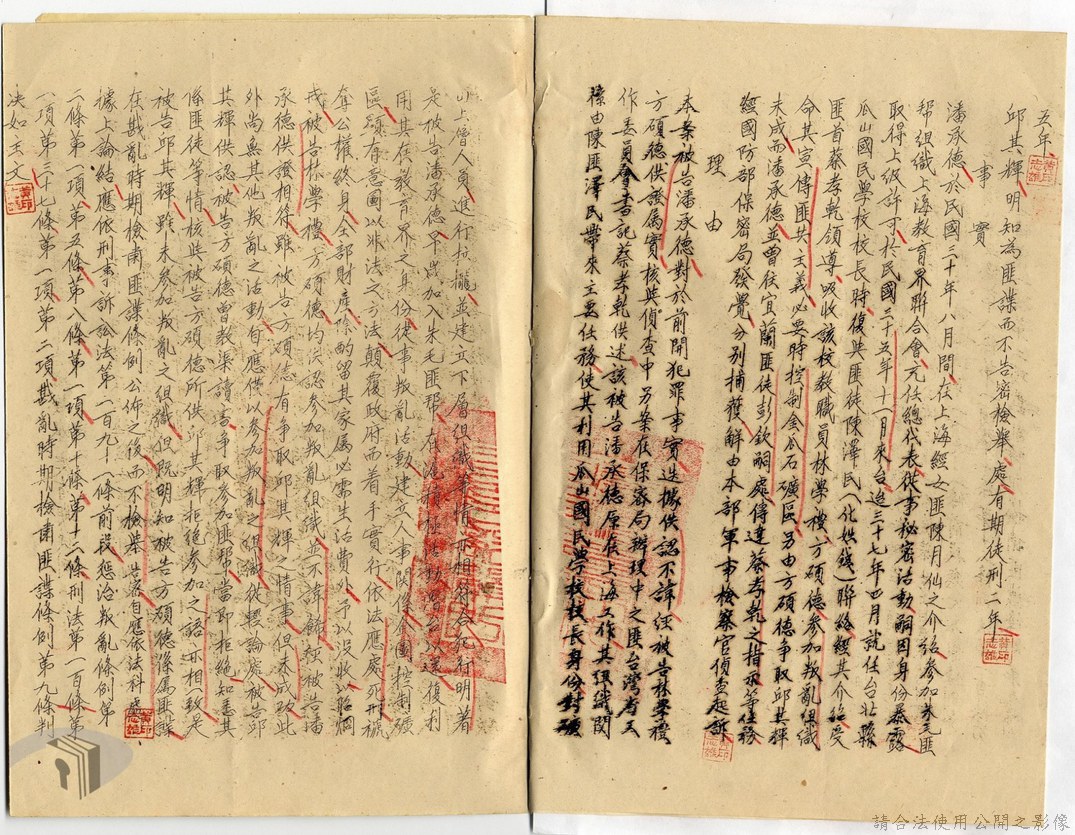 五年
邱其輝明知為匪諜而不告密檢舉處有期徒刑二年
事實
潘承德於民國三十年八月間在上海經女匪陳月仙之介紹參加朱毛匪
幫組織上海教育界聯合會元任總代表從事秘密活動嗣因身份暴露
取得上級許可於民國三十五年十一月來台迨三十七年四月就任台北縣
瓜山國民學校校長時復與匪徒陳澤民(化姓錢)聯絡經其介紹受
匪首蔡孝乾領導吸收該校教職員林學禮方碩德參加叛亂組織
命其宣傳匪共主義必要時控制金瓜石礦區另由方碩德爭取邱其輝
未成而潘承德並曾往宜蘭匪徒彭欽嗣處傳達蔡孝乾之指示等任務
經國防部保密局發覺分別捕獲解由本部軍事檢察官偵查起訴
理由
本案被告潘承德對於前開犯罪事實迭據供認不諱經被告林學禮
方碩德供證屬實核與偵查中另案在保密局辦理中之匪台灣省工
作委員會書記蔡孝乾供述該被告潘承德原在上海工作其組織關
係由陳匪澤民帶來主要任務使其利用瓜山國民學校校長身份對礦
山上層人員進行拉攏並建立下層組織等情亦相符合犯行明著
是被告潘承德早歲加入朱毛匪幫在滬積極活動
復利
用其在教育界之身份從事叛亂活動建立人事關係企圖控制礦
區顯有意圖以非法之方法顛覆政府而着手實行依法應處死刑褫
奪公權終身全部財產除酌留其家屬必需生活費外予以沒收昭炯
戒被告林學禮方碩德均供認參加叛亂組織並不諱飾經被告潘
承德供證相符雖被告方碩德有爭取邱其輝之情事但未成功此
外尚無其他叛亂之活動自應僅以參加叛亂之組織從輕論處被告邱
其輝供認被告方碩德曾教渠讀書爭取參加匪幫當即拒絕知善其
係匪徒等情核與被告方碩德所供邱其輝拒絕參加之語亦相一致是
被告邱其輝雖未參加叛亂之組織但既明知被告方碩德係屬匪諜
在戡亂時期檢肅匪諜條例公佈之後而不檢舉告密自應依法科處
據上論結應依刑事訴訟法第二百九十一條前段懲治叛亂條例第
二條第一項第五條第八條第一項第十條第十二條刑法第一百條第
一項第三十七條第一項第二項戡亂時期檢肅匪諜條例第九條判
決如主文
請合法使用公開之影像